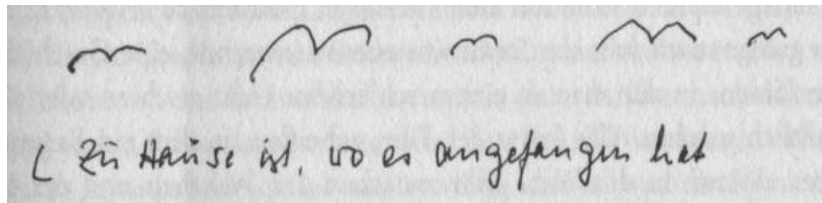 ( Zu Hause ist, wo es angefangen hat